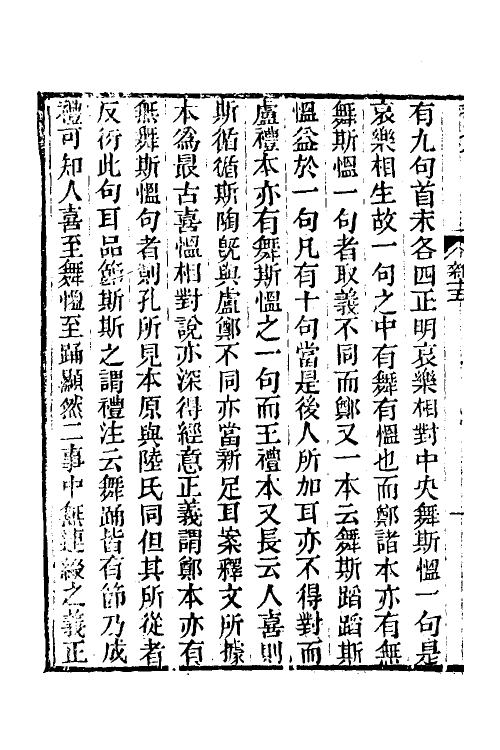 有九句首末各四正明哀樂相對中央舞斯慍一句是
哀樂相生故一句之中有舞有慍也而鄭諸本亦有無
舞斯慍一句者取義不同而鄭又一本云舞斯蹈蹈斯
慍益於一句凡有十句當是後人所加耳亦不得對而
盧禮本亦有舞斯慍之一句而王禮本又長云人喜則
斯循循斯陶旣與盧鄭不同亦當新足耳案釋文所據
本爲最古喜慍相對說亦深得經意正義謂鄭本亦有
無舞斯慍句者則孔所見本原與陸氏同但其所從者
反衍此句耳品節斯斯之謂禮注云舞踊皆有節乃成
禮可知人喜至舞慍至踊顯然二事中無連綴之義正